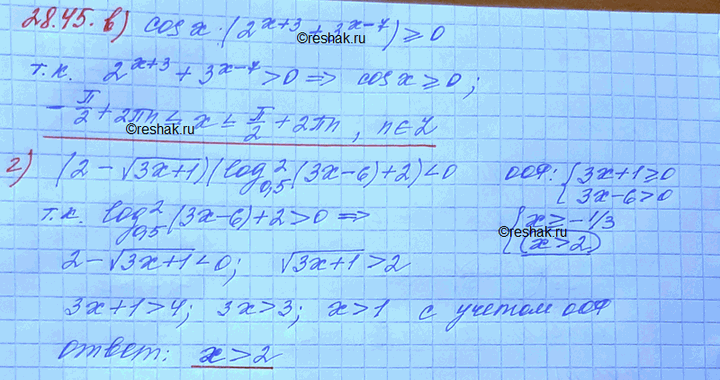 28.45. в) cos x · (2^{x+3} + 3^{x-7}) ≥ 0
©reshak.ru
т.к. 2^{x+3} + 3^{x-7} > 0 => cos x ≥ 0;
-π/2 + 2πn ≤ x ≤ π/2 + 2πn, n∈Z
©reshak.ru
г) (2 - √(3x+1)) (log²_{0,5} (3x-6) + 2) < 0 ООФ: { 3x+1 ≥ 0
©reshak.ru 3x-6 > 0
т.к. log²_{0,5} (3x-6) + 2 > 0 => { x ≥ -1/3
©reshak.ru x > 2
2 - √(3x+1) < 0; √(3x+1) > 2
3x+1 > 4; 3x > 3; x > 1 с учетом ООФ
©reshak.ru
ответ: x > 2